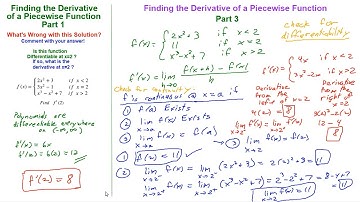 Finding the Derivative of a Piecewise Function
Part 1
What's Wrong with this Solution?
Comment with your answer!
Is this function
Differentiable at x=2 ?
If so, what is the
derivative at x=2 ?
f(x) = { 2x² + 3 if x < 2
3x² − 1 if x = 2
x³ − x² + 7 if x > 2
Find f′(2)
Polynomials
are differentiable
everywhere
on (-∞,∞)
f'(x) = 6x
f'(2) = 6(2) = 12
f'(2) = 8
Finding the Derivative of a Piecewise Function
Part 3
f(x) = { 2x²+3 if x < 2
11 if x = 2
x³-x²+7 if x > 2
f'(x) = lim h→0 f(x+h) - f(x) / h
check for continuity
f is continuous at x = a if
① f(a) Exists
② lim x→a f(x) Exists
③ lim x→a f(x) = f(a)
① f(2) = 11
② lim x→2⁻ f(x) = lim x→2⁻ (2x²+3) = 2(2)²+3 = 11
lim x→2⁺ f(x) = lim x→2⁺ (x³-x²+7) = 2³-2²+7 = 8-4+7 = 11
lim x→2 f(x) = 11
③ lim x→2 f(x) = f(2)
check for
differentiability
f'(x) = { 4x if x < 2
3x²-2x if x > 2
Derivative
from the
left of x=2
4(2) = 8
Derivative
from the
right of x=2
3(2)²-2(2)
12-4
8